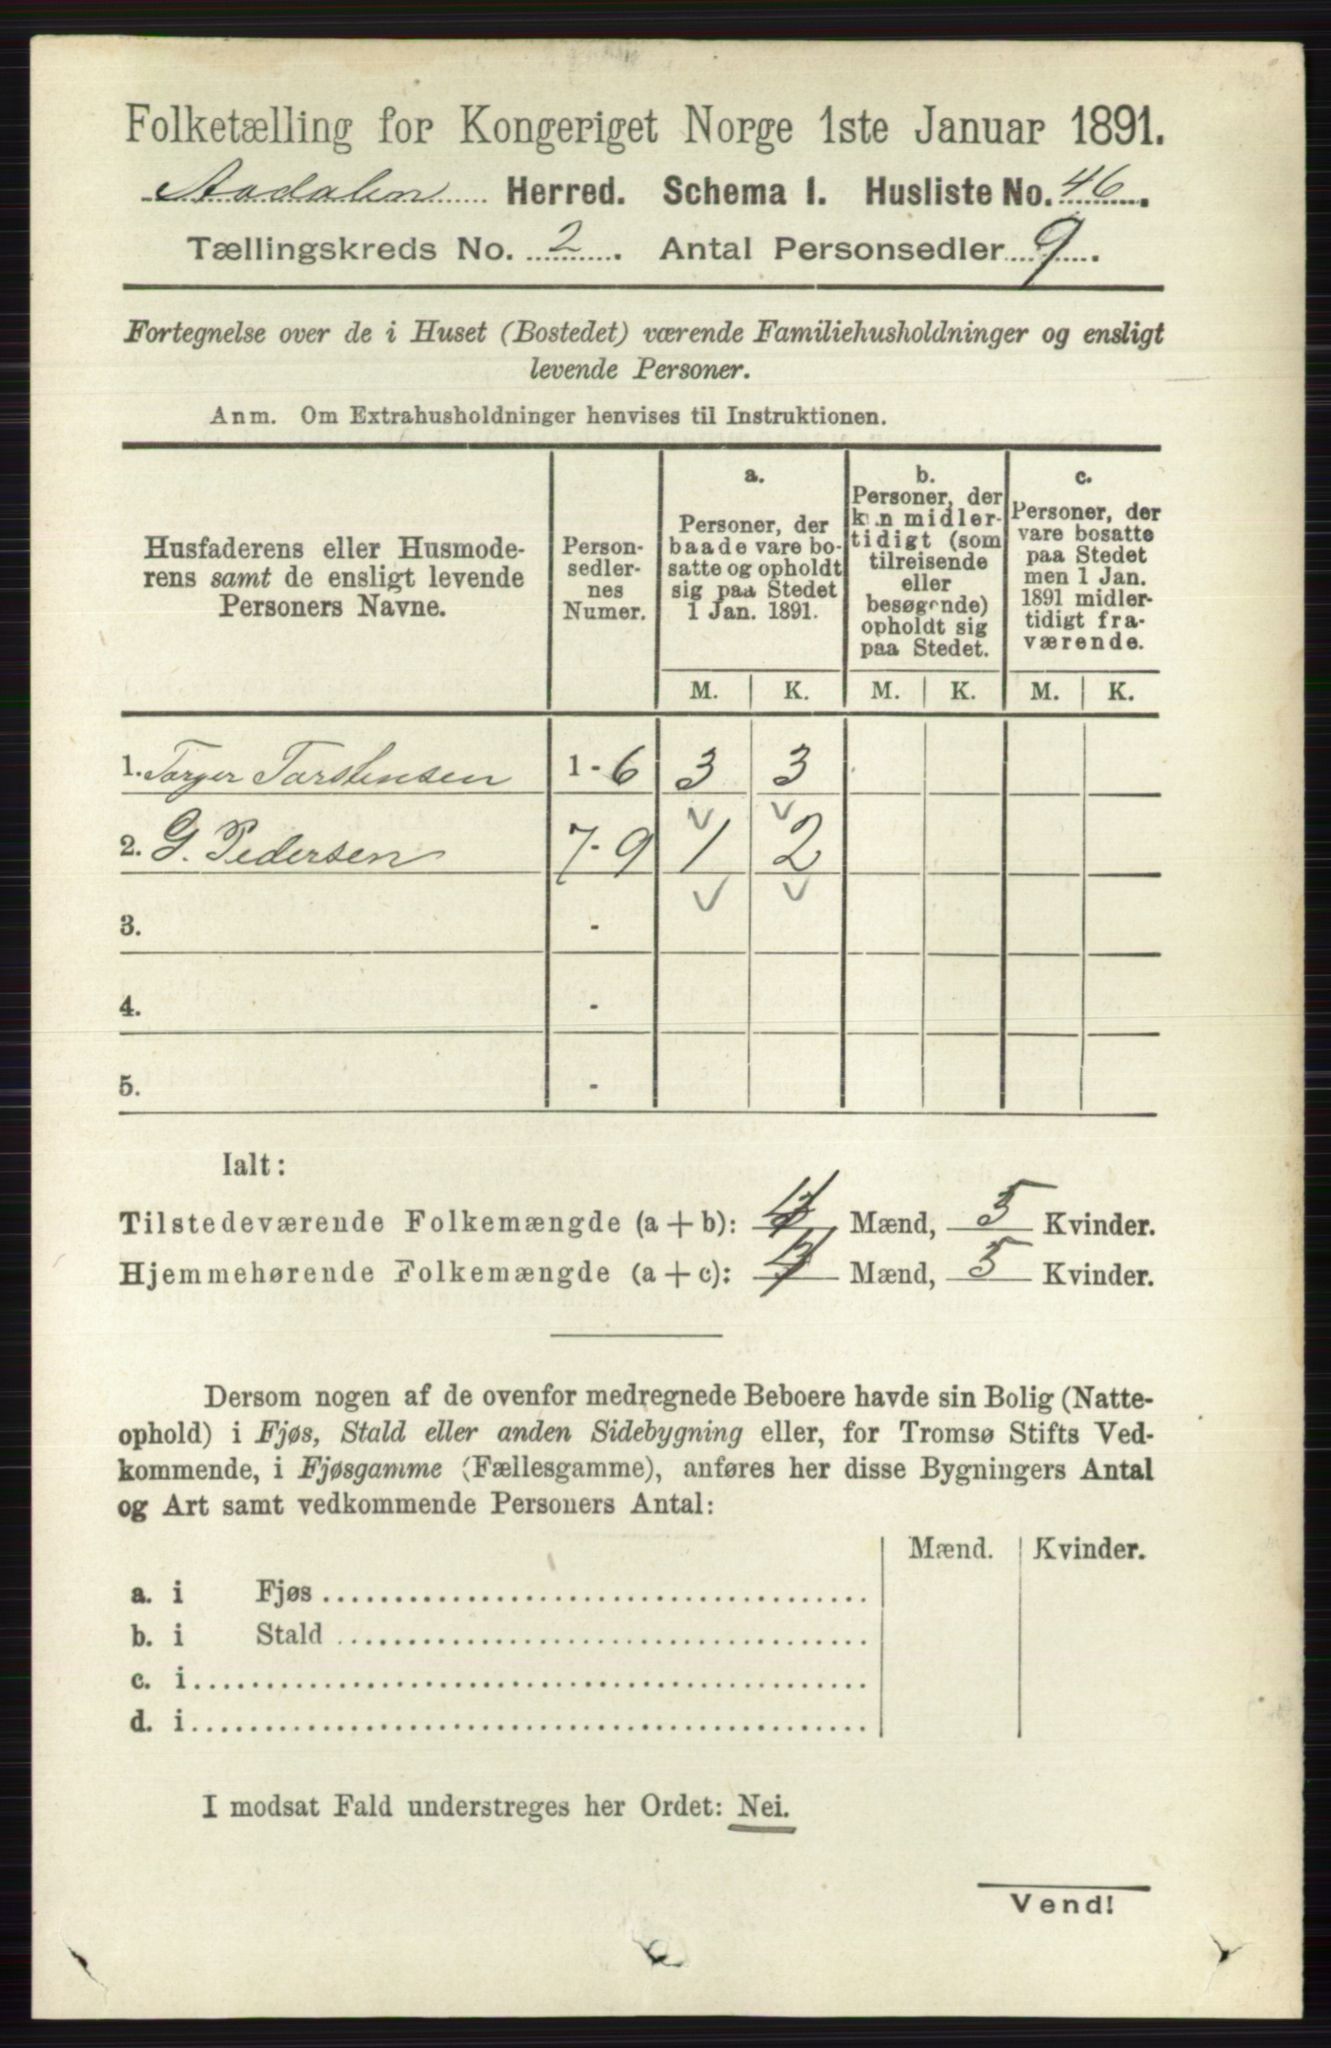 Folketælling for Kongeriget Norge 1ste Januar 1891.
Aadalen Herred. Schema 1. Husliste No. 46.
Tællingskreds No. 2. Antal Personsedler 9.
Fortegnelse over de i Huset (Bostedet) værende Familiehusholdninger og ensligt
levende Personer.
Anm. Om Extrahusholdninger henvises til Instruktionen.
Husfaderens eller Husmode-
rens samt de ensligt levende
Personers Navne.
Person-
sedler-
nes
Numer.
a.
Personer, der
baade vare bo-
satte og opholdt
sig paa Stedet
1 Jan. 1891.
b.
Personer, der
kun midler-
tidigt (som
tilreisende
eller
besøgende)
opholdt sig
paa Stedet.
c.
Personer, der
vare bosatte
paa Stedet
men 1 Jan.
1891 midler-
tidigt fra-
værende.
M. K. M. K. M. K.
1. Torger Torstensen 1-6 3 3
2. G. Pedersen 7-9 1 2
3. -
4. -
5. -
Ialt:
Tilstedeværende Folkemængde (a+b): 4 Mænd, 5 Kvinder.
Hjemmehørende Folkemængde (a+c): 4 Mænd, 5 Kvinder.
Dersom nogen af de ovenfor medregnede Beboere havde sin Bolig (Natte-
ophold) i Fjøs, Stald eller anden Sidebygning eller, for Tromsø Stifts Ved-
kommende, i Fjøsgamme (Fællesgamme), anføres her disse Bygningers Antal
og Art samt vedkommende Personers Antal:
Mænd. Kvinder.
a. i Fjøs
b. i Stald
c. i
d. i
I modsat Fald understreges her Ordet: Nei.
Vend!